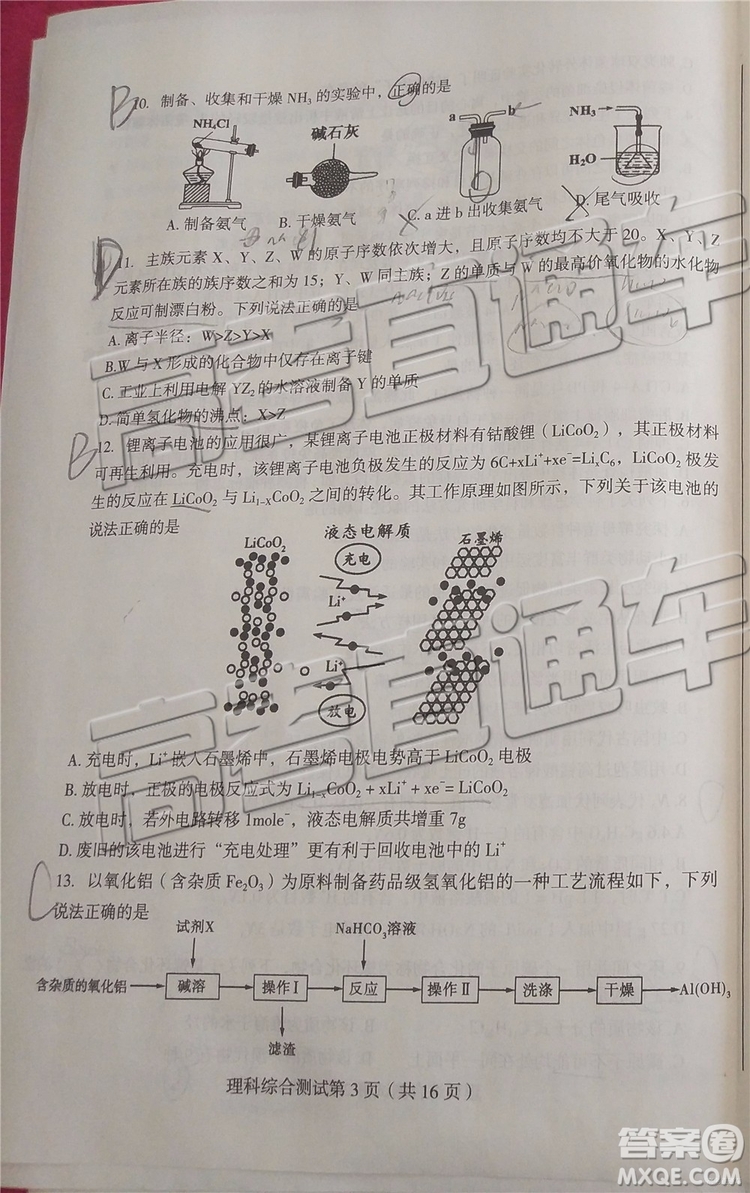 10. 制备、收集和干燥 NH₃ 的实验中，正确的是
NH₄Cl 碱石灰 a b NH₃ H₂O
A. 制备氨气 B. 干燥氨气 C. a 进 b 出收集氨气 D. 尾气吸收
11. 主族元素 X、Y、Z、W 的原子序数依次增大，且原子序数均不大于 20。X、Y、Z
元素所在族的族序数之和为 15；Y、W 同主族；Z 的单质与 W 的最高价氧化物的水化物
反应可制漂白粉。下列说法正确的是
A. 离子半径：W>Z>Y>X
B.W 与 X 形成的化合物中仅存在离子键
C. 工业上利用电解 YZ₂ 的水溶液制备 Y 的单质
D. 简单氢化物的沸点：X>Z
12. 锂离子电池的应用很广，某锂离子电池正极材料有钴酸锂（LiCoO₂），其正极材料
可再生利用。充电时，该锂离子电池负极发生的反应为 6C+xLi⁺+xe⁻=LiₓC₆，LiCoO₂ 极发
生的反应在 LiCoO₂ 与 Li₁₋ₓCoO₂ 之间的转化。其工作原理如图所示，下列关于该电池的
说法正确的是
LiCoO₂ 液态电解质 石墨烯
充电
Li⁺
Li⁺
放电
A. 充电时，Li⁺嵌入石墨烯中，石墨烯电极电势高于 LiCoO₂ 电极
B. 放电时，正极的电极反应式为 Li₁₋ₓCoO₂ + xLi⁺ + xe⁻= LiCoO₂
C. 放电时，若外电路转移 1mole⁻，液态电解质共增重 7g
D. 废旧的该电池进行“充电处理”更有利于回收电池中的 Li⁺
13. 以氧化铝（含杂质 Fe₂O₃）为原料制备药品级氢氧化铝的一种工艺流程如下，下列
说法正确的是
试剂X NaHCO₃溶液
含杂质的氧化铝 碱溶 操作Ⅰ 反应 操作Ⅱ 洗涤 干燥 Al(OH)₃
滤渣
理科综合测试第 3 页（共 16 页）
高考直通车
高考直通车
高考直通车
答案圈
MXQE.COM
B
D
B
C